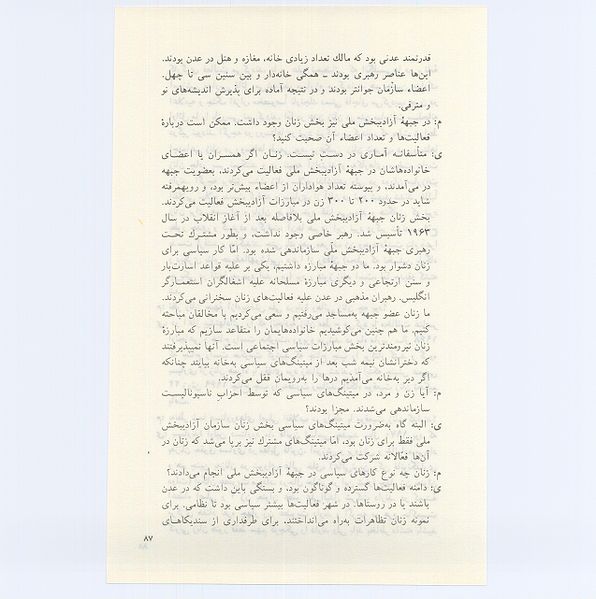 قدرتمند عدنی بود که مالك تعداد زیادی خانه، مغازه و هتل در عدن بودند.
این‌ها عناصر رهبری بودند ـ همگی خانه‌دار و بین سنین سی تا چهل.
اعضاء سازمان جوانتر بودند و در نتیجه آماده برای پذیرش اندیشه‌های نو
و مترقی.
م: در جبههٔ آزادیبخش ملی نیز بخش زنان وجود داشت. ممکن است دربارهٔ
فعالیت‌ها و تعداد اعضاء آن صحبت کنید؟
ی: متأسفانه آماری در دست نیست. زنان اگر همسران یا اعضای
خانواده‌هاشان در جبههٔ آزادیبخش ملی فعالیت می‌کردند، بعضویت جبهه
در می‌آمدند، و پیوسته تعداد هواداران از اعضاء بیش‌تر بود، و رویهمرفته
شاید در حدود ۲۰۰ تا ۳۰۰ زن در مبارزات آزادیبخش فعالیت می‌کردند.
بخش زنان جبههٔ آزادیبخش ملی بلافاصله بعد از آغاز انقلاب در سال
۱۹۶۳ تأسیس شد. رهبر خاصی وجود نداشت، و بطور مشترك تحت
رهبری جبههٔ آزادیبخش ملّی سازماندهی شده بود. امّا کار سیاسی برای
زنان دشوار بود. ما دو جبههٔ مبارزه داشتیم، یکی بر علیه قواعد اسارت‌بار
و سنن ارتجاعی و دیگری مبارزهٔ مسلحانه علیه اشغالگران استعمارگر
انگلیس. رهبران مذهبی در عدن علیه فعالیت‌های زنان سخنرانی می‌کردند.
ما زنان عضو جبهه به‌مساجد می‌رفتیم و سعی می‌کردیم با مخالفان مباحثه
کنیم. ما هم چنین می‌کوشیدیم خانواده‌هایمان را متقاعد سازیم که مبارزهٔ
زنان نیرومندترین بخش مبارزات سیاسی اجتماعی است. آنها نمیپذیرفتند
که دخترانشان نیمه شب بعد از میتینگ‌های سیاسی به‌خانه بیایند چنانکه
اگر دیر به‌خانه می‌آمدیم درها را به‌رویمان قفل می‌کردند.
م: آیا زن و مرد، در میتینگ‌های سیاسی که توسط احزاب ناسیونالیست
سازماندهی می‌شدند. مجزا بودند؟
ی: البته گاه به‌ضرورت میتینگ‌های سیاسی بخش زنان سازمان آزادیبخش
ملی فقط برای زنان بود، امّا میتینگ‌های مشترك نیز برپا می‌شد که زنان در
آن‌ها فعّالانه شرکت می‌کردند.
م: زنان چه نوع کارهای سیاسی در جبههٔ آزادیبخش ملی انجام می‌دادند؟
ی: دامنه فعالیت‌ها گسترده و گوناگون بود، و بستگی باین داشت که در عدن
باشند یا در روستاها. در شهر فعالیت‌ها بیشتر سیاسی بود تا نظامی. برای
نمونه زنان تظاهرات به‌راه می‌انداختند. برای طرفداری از سندیکاهای
۸۷